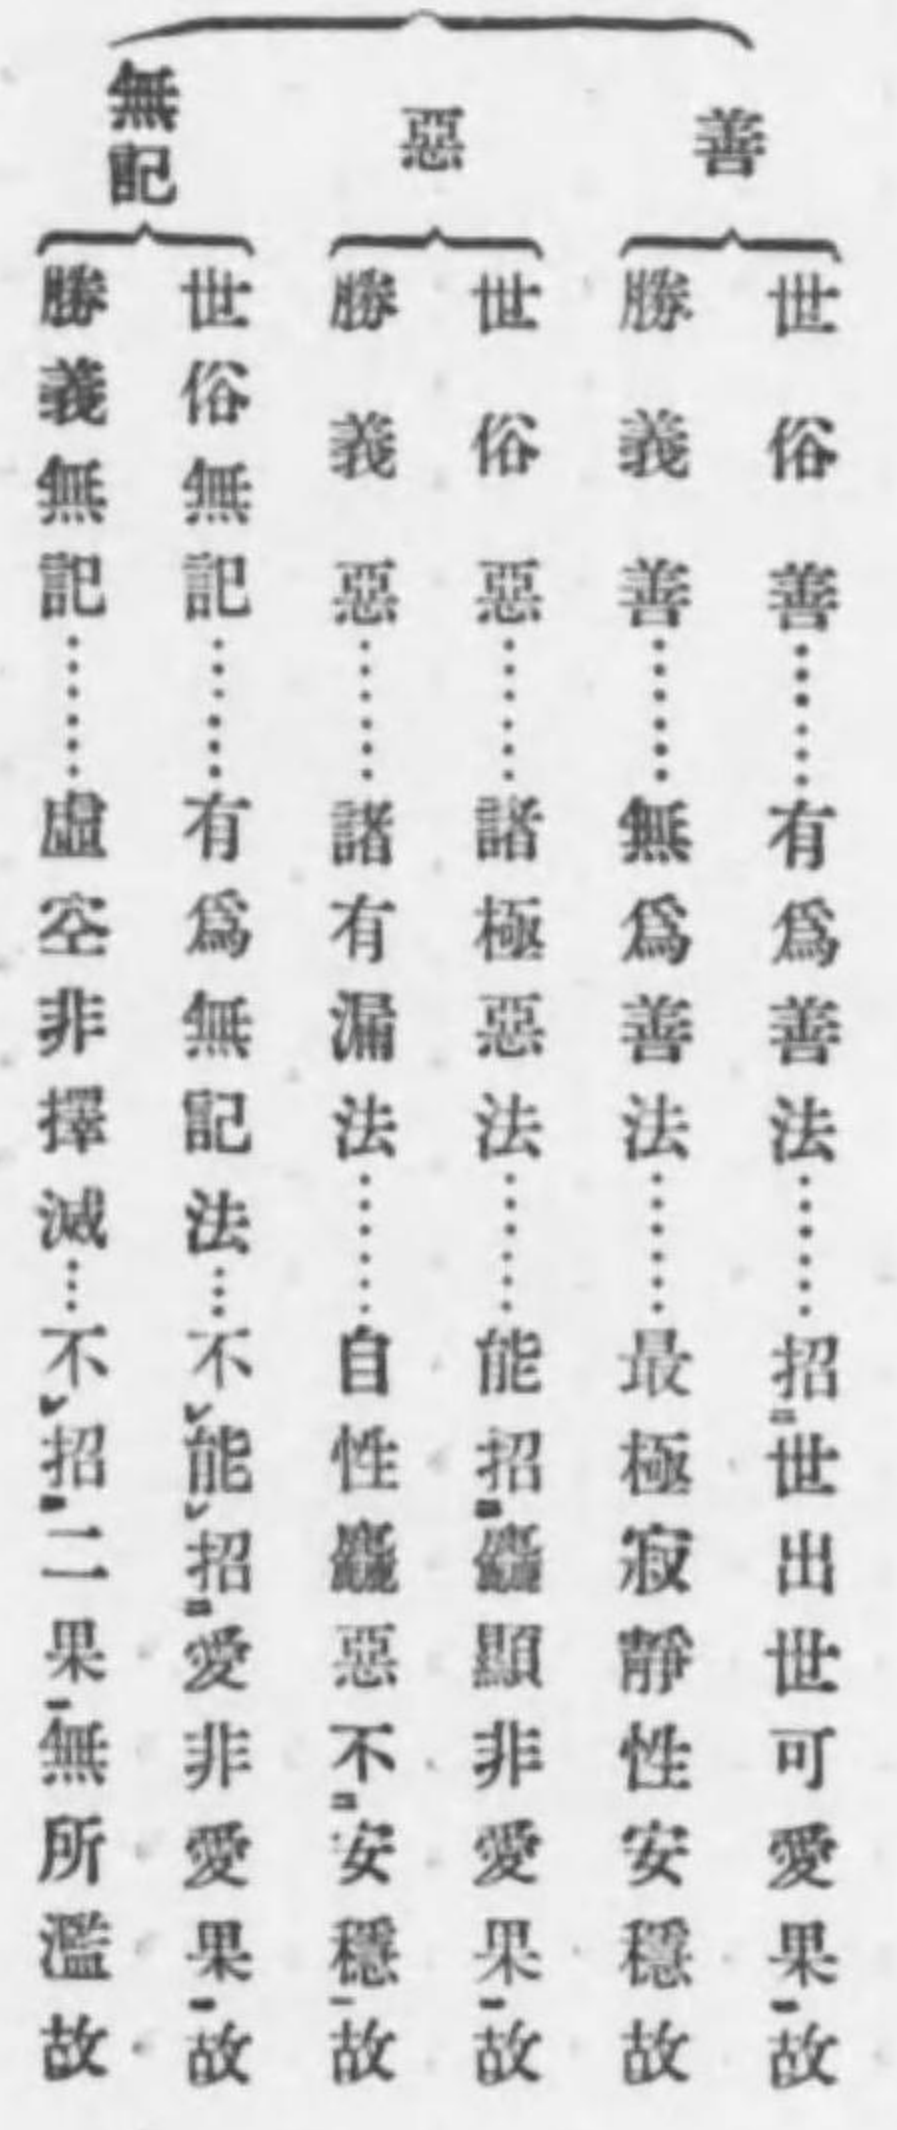 善
世俗善……有爲善法……招㆓世出世可愛果㆒故
勝義善……無爲善法……最極寂靜性安穩故
惡
世俗惡……諸極惡法……能招㆓麤顯非愛果㆒故
勝義惡……諸有漏法……自性麤惡不㆓安穩㆒故
無記
世俗無記……有爲無記法…不㆑能㆑招㆓愛非愛果㆒故
勝義無記……虛空非擇滅…不㆑招㆓二果㆒無所濫故